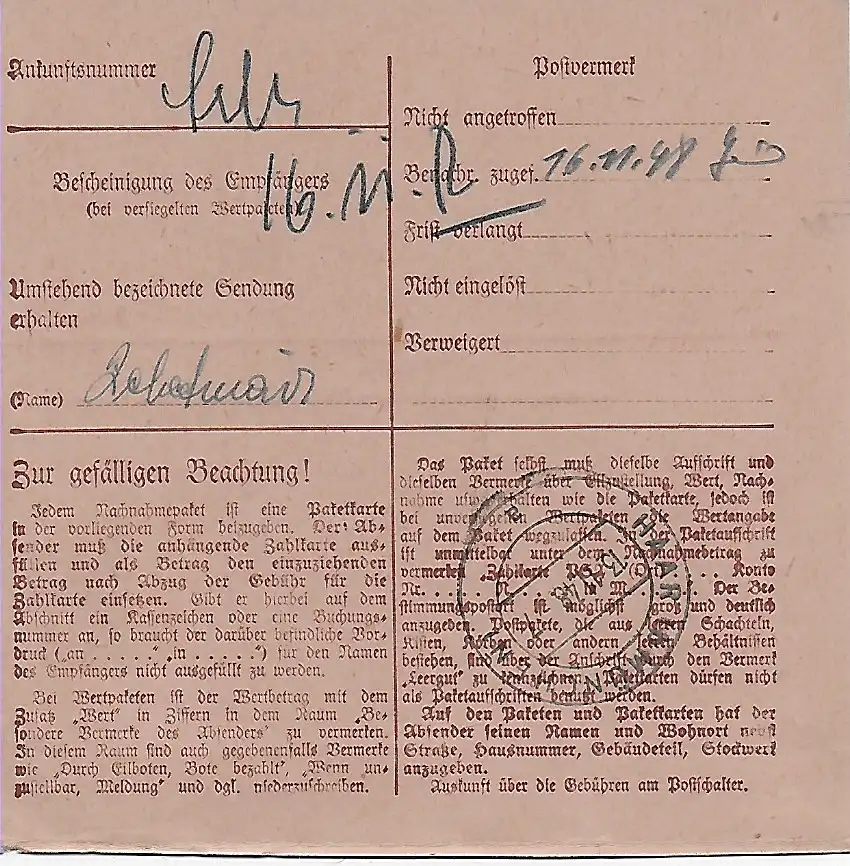 Ankunftsnummer
Bescheinigung des Empfängers
(bei versiegelten Wertpaketen)
16. 11.
Umstehend bezeichnete Sendung
erhalten
(Name)
Postvermerk
Nicht angetroffen
Benachr. zugef. 16.11.48
Frist verlangt
Nicht eingelöst
Verweigert
Zur gefälligen Beachtung!
Jedem Nachnahmepaket ist eine Paketkarte
in der vorliegenden Form beizugeben. Der Ab-
sender muß die anhängende Zahlkarte aus-
füllen und als Betrag den einzuziehenden
Betrag nach Abzug der Gebühr für die
Zahlkarte einsetzen. Gibt er hierbei auf dem
Abschnitt ein Kassenzeichen oder eine Buchungs-
nummer an, so braucht der darüber befindliche Vor-
druck („an . . . . .“ „in . . . . .“) für den Namen
des Empfängers nicht ausgefüllt zu werden.
Bei Wertpaketen ist der Wertbetrag mit dem
Zusatz „Wert“ in Ziffern in dem Raum „Be-
sondere Vermerke des Absenders“ zu vermerken.
In diesem Raum sind auch gegebenenfalls Vermerke
wie „Durch Eilboten, Bote bezahlt“, „Wenn un-
zustellbar, Meldung“ und dgl. niederzuschreiben.
Das Paket selbst muß dieselbe Aufschrift und
dieselben Vermerke über Eilzustellung, Wert, Nach-
nahme usw. erhalten wie die Paketkarte, jedoch ist
bei unversiegelten Wertpaketen die Wertangabe
auf dem Paket wegzulassen. In der Paketaufschrift
ist unmittelbar unter dem Nachnahmebetrag zu
vermerken „Zahlkarte PSch (Ort) . . . . Konto
Nr. . . . . M . . . . Der Be-
stimmungspostort ist möglichst groß und deutlich
anzugeben. Postpakete, die aus leeren Schachteln,
Kisten, Körben oder andern leeren Behältnissen
bestehen, sind über der Anschrift durch den Vermerk
„Leergut“ zu kennzeichnen. Paketkarten dürfen nicht
als Paketaufschriften benutzt werden.
Auf den Paketen und Paketkarten hat der
Absender seinen Namen und Wohnort nebst
Straße, Hausnummer, Gebäudeteil, Stockwerk
anzugeben.
Auskunft über die Gebühren am Postschalter.